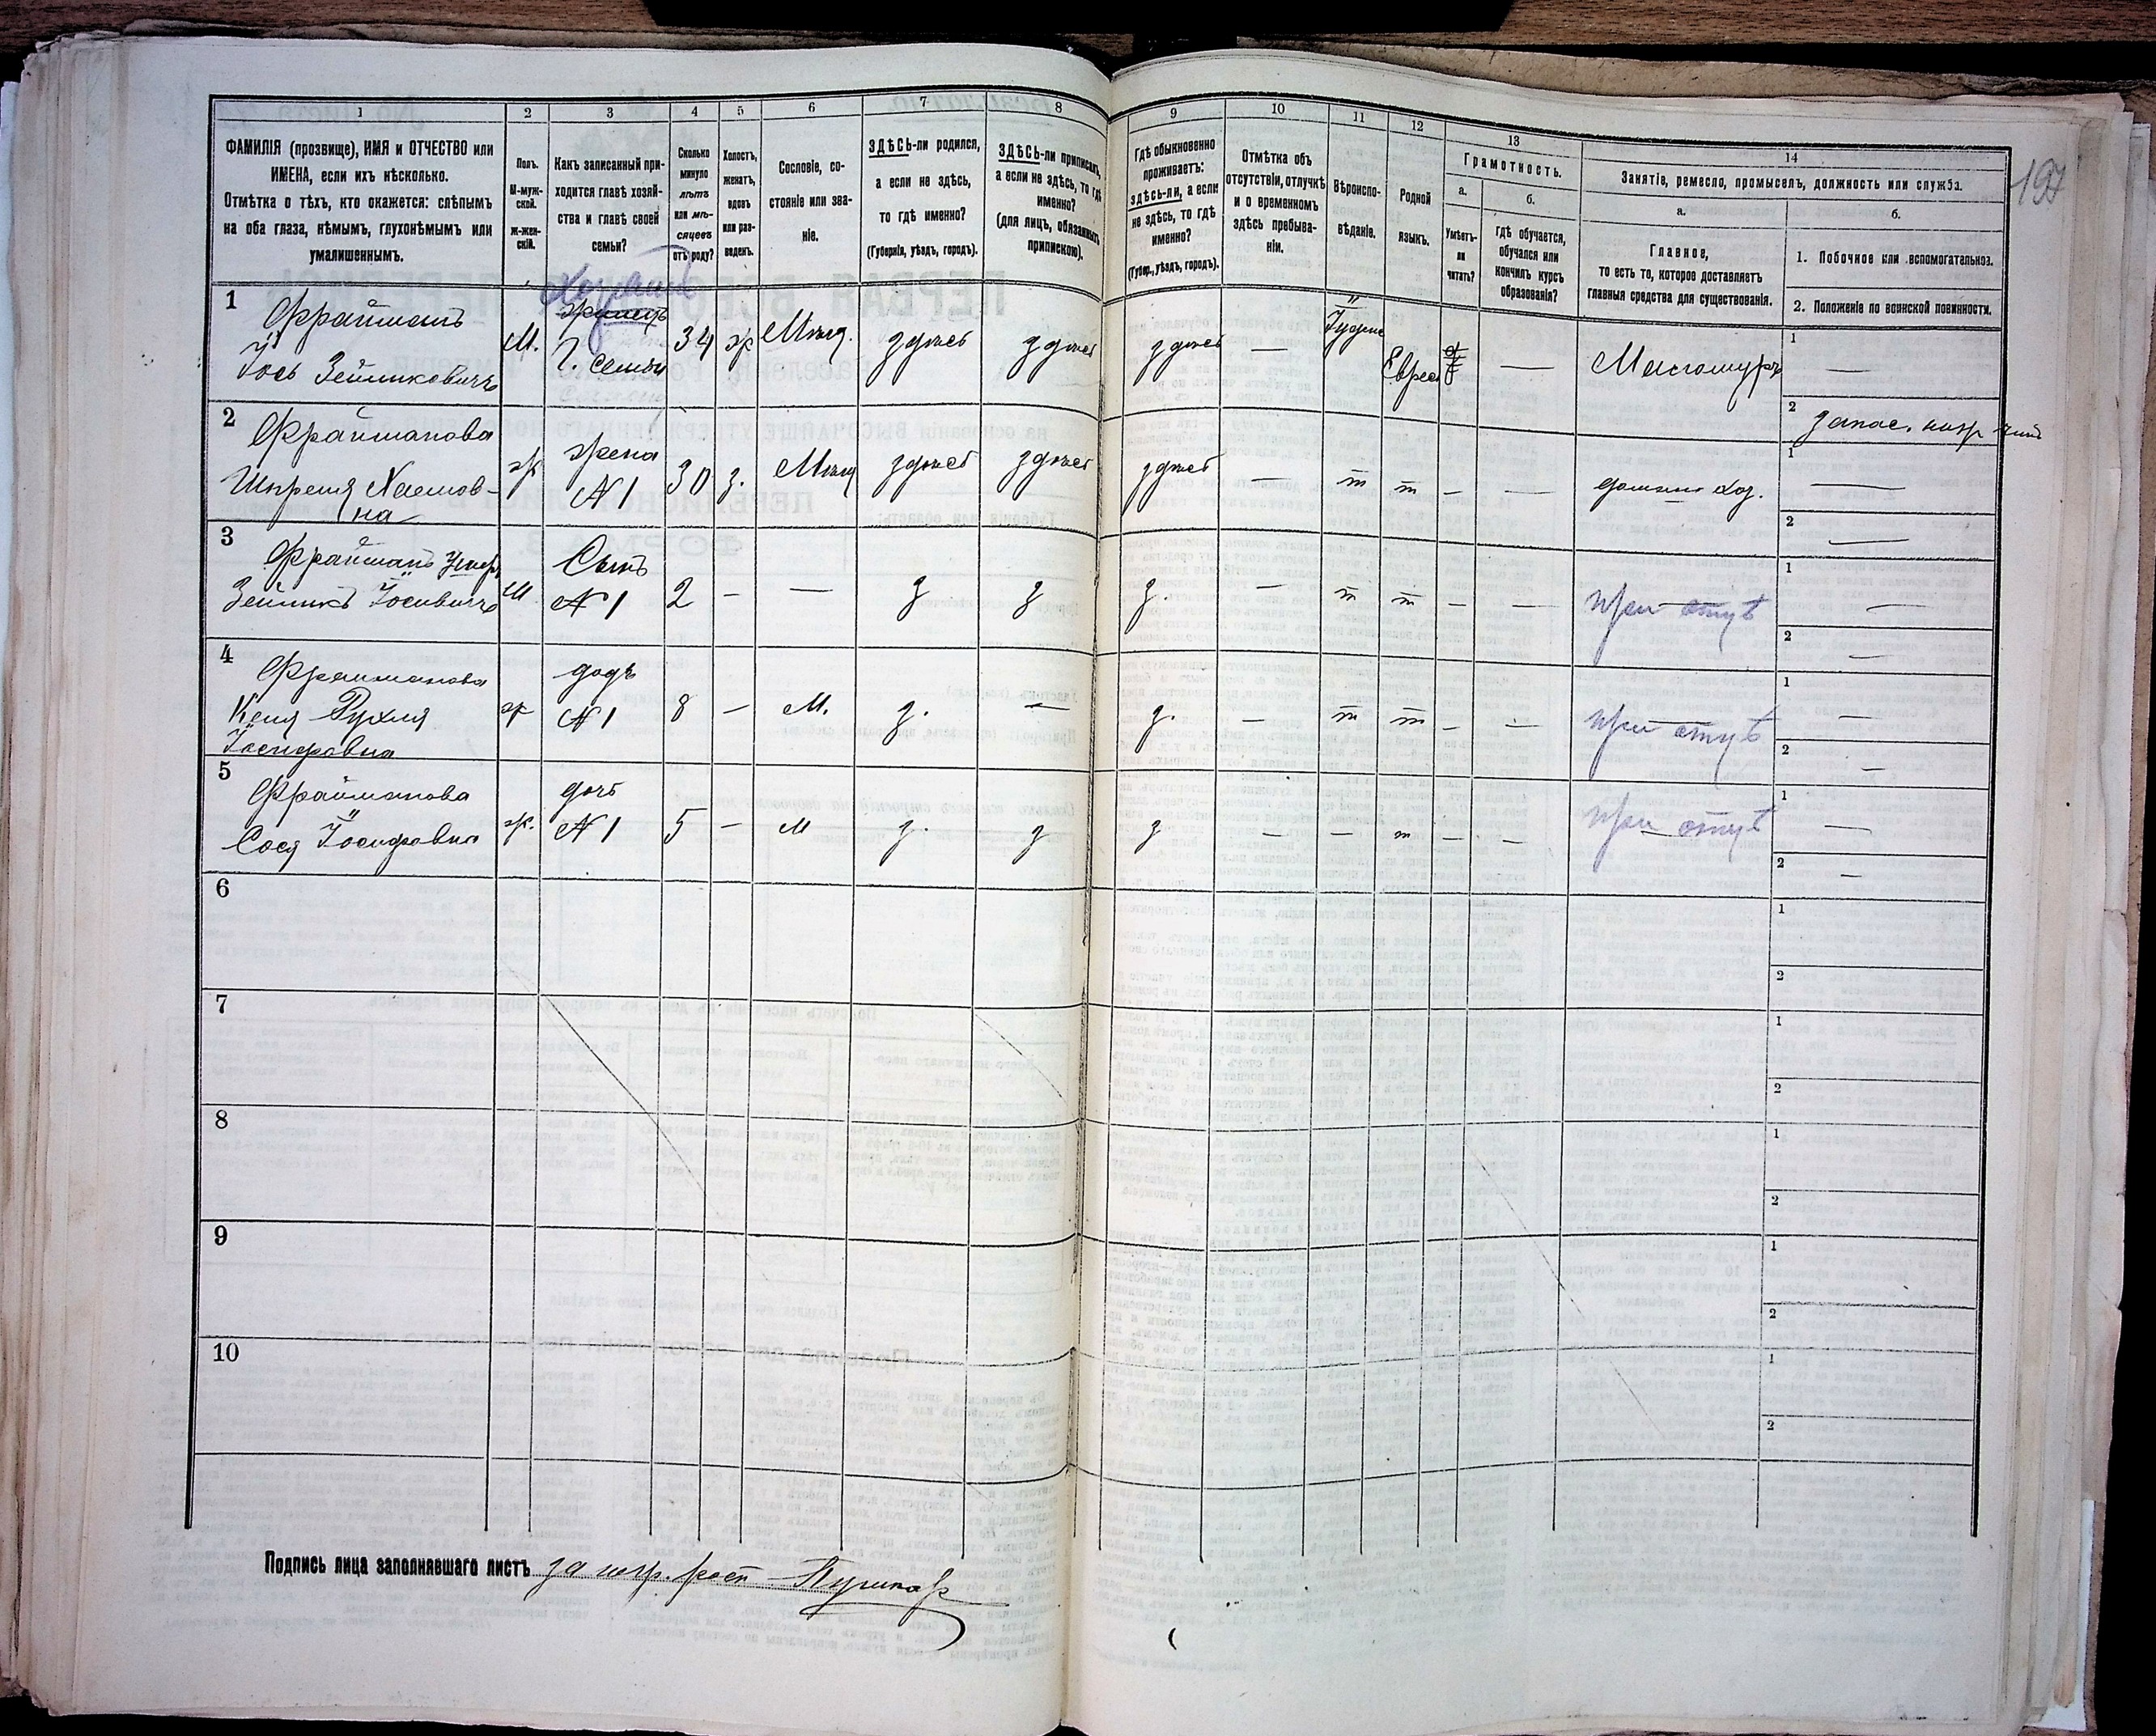 1
2
3
4
5
6
7
8
9
10
11
12
13
14
ФАМИЛІЯ (прозвище), ИМЯ и ОТЧЕСТВО или
ИМЕНА, если ихъ нѣсколько.
Отмѣтка о тѣхъ, кто окажется: слѣпымъ
на оба глаза, нѣмымъ, глухонѣмымъ или
умалишеннымъ.
Полъ.
М-муж-
ской.
Ж-жен-
скій.
Какъ записанный при-
ходится главѣ хозяй-
ства и главѣ своей
семьи?
Сколько
минуло
лѣтъ
или мѣ-
сяцевъ
отъ роду?
Холостъ,
женатъ,
вдовъ
или раз-
веденъ.
Сословіе, со-
стояніе или зва-
ніе.
ЗДѢСЬ-ли родился,
а если не здѣсь,
то гдѣ именно?
(Губернія, уѣздъ, городъ).
ЗДѢСЬ-ли приписанъ,
а если не здѣсь, то гдѣ
именно?
(для лицъ, обязанныхъ
припискою).
Гдѣ обыкновенно
проживаетъ:
здѣсь-ли, а если
не здѣсь, то гдѣ
именно?
(Губер., уѣздъ, городъ).
Отмѣтка объ
отсутствіи, отлучкѣ
и о временномъ
здѣсь пребыва-
ніи.
Вѣроиспо-
вѣданіе.
Родной
языкъ.
Грамотность.
а.
Умѣетъ-
ли
читать?
б.
гдѣ обучается,
обучался или
кончилъ курсъ
образованія?
Занятіе, ремесло, промыселъ, должность или служба.
а.
Главное,
то есть то, которое доставляетъ
главныя средства для существованія.
б.
1. Побочное или вспомогательное.
2. Положеніе по воинской повинности.
197
Хозяинъ
1
Файманъ
Іось Зейликовичъ
М.
Г. семьи
34
ж
Мѣщ.
здѣсь
здѣсь
здѣсь
—
Іудейс
Еврей
—
1
—
2
запас.
2
Фраиманова
ж
жена
№ 1
30
з.
Мѣщ
здѣсь
здѣсь
здѣсь
—
т
т
—
—
домашн. хоз.
1
—
2
—
3
Фрайманъ
Зейликъ Іосивичъ
М
Сынъ
№ 1
2
-
—
з
з
з.
—
т
т
—
—
при отцѣ
1
—
2
—
4
Фраиманова
Рухля
Іосифовна
ж
дочь
№ 1
8
—
М.
з.
—
з.
—
т
т
—
—
при отцѣ
1
—
2
—
5
Фрайманова
Сося Іосифовна
ж.
дочь
№ 1
5
—
М
з.
з
з
—
—
т
—
—
при отцѣ
1
—
2
—
6
1
2
7
1
2
8
1
2
9
1
2
10
1
2
Подпись лица заполнявшаго листъ за негр.